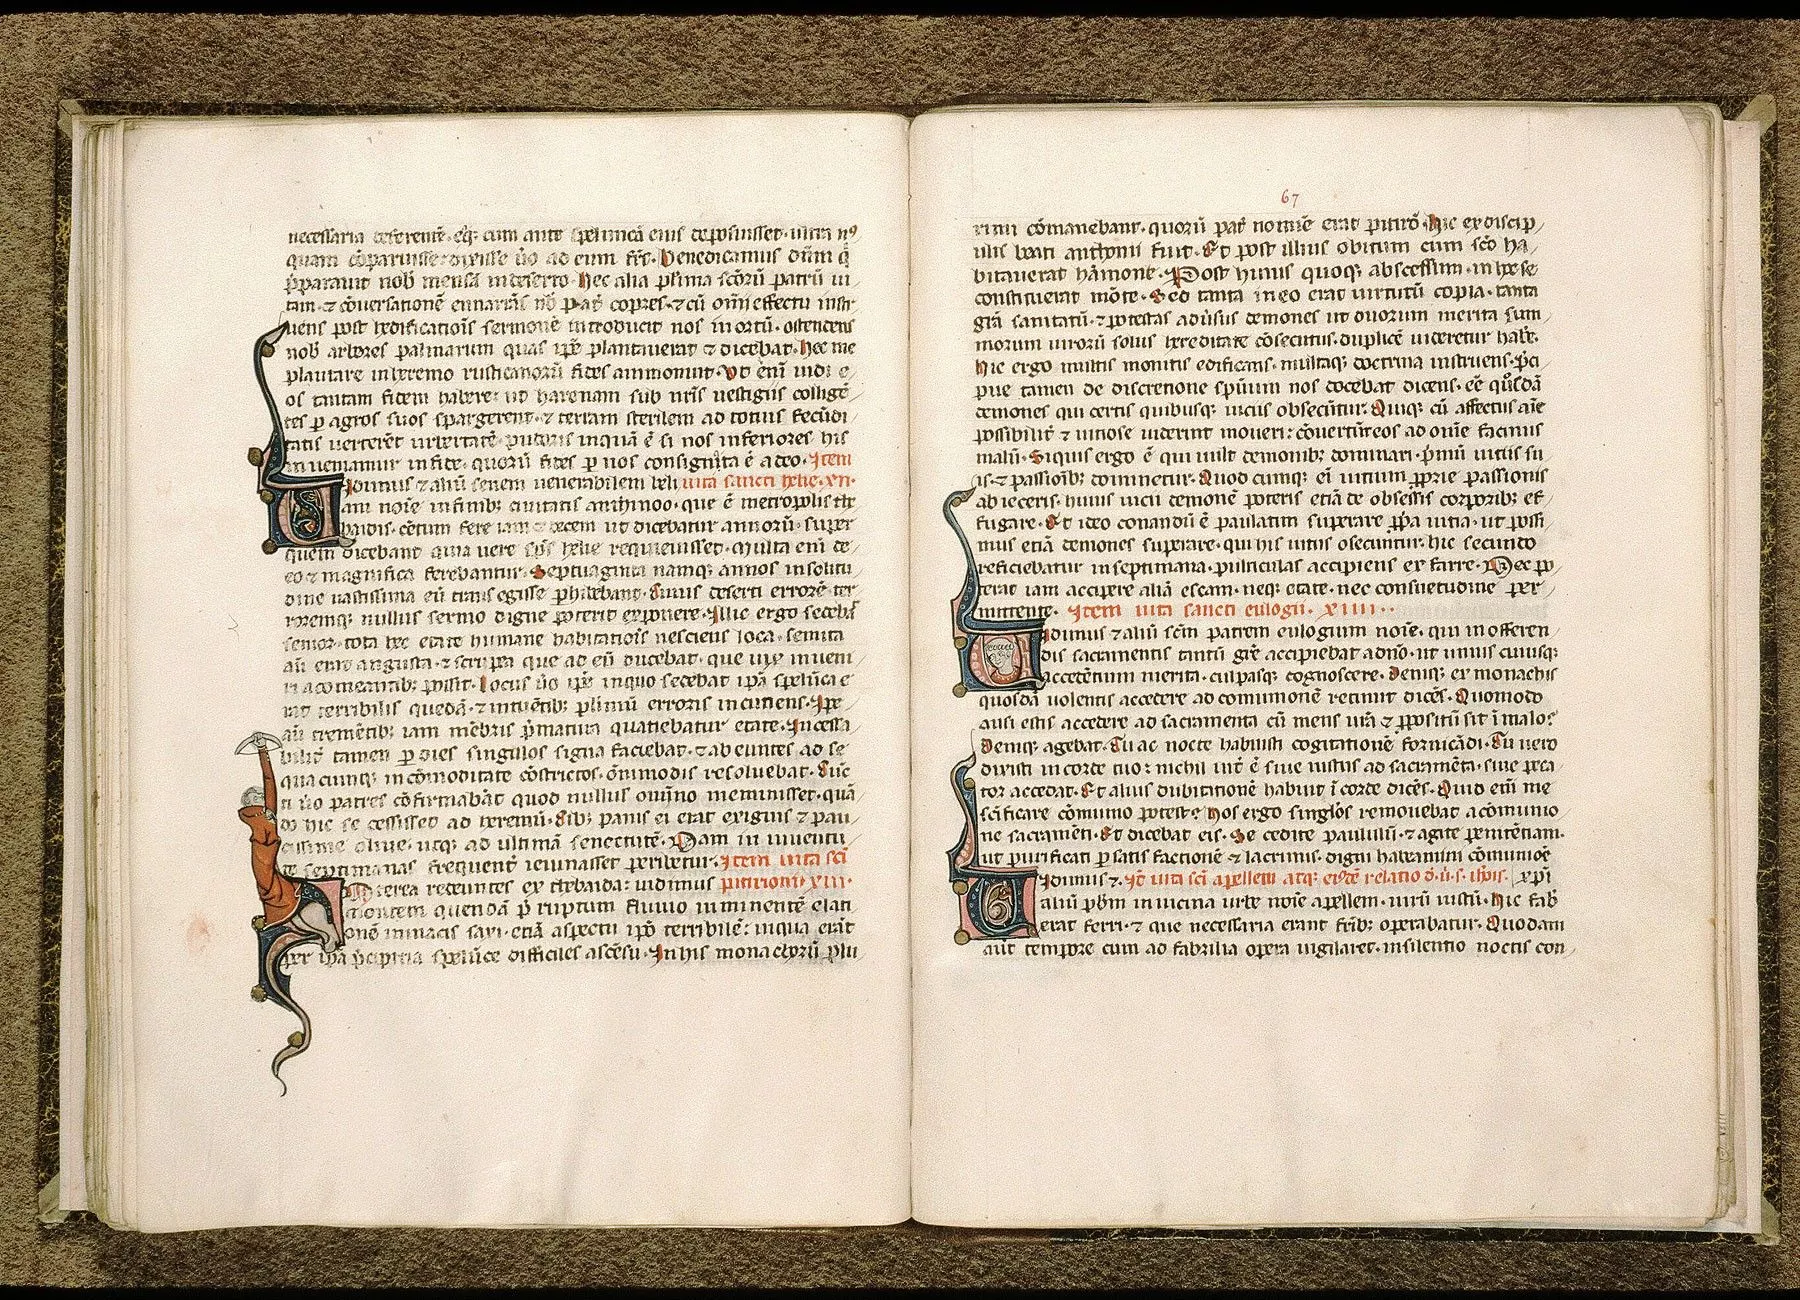 necessaria deferente. eq̃. cum ante speluncã eius deposuisset. uitra nꝰ
quam cõparuisse. dixisse ũo ad eum frẽs. Benedicamus dñm q̃
p̃parauit nob̃ mensã in deserto. Hec alia plĩma sc̃orũ patrũ ui
tam. ⁊ cõuersationẽ enarrãs nõ pat̃ copres. ⁊ cũ om̃i effectu instr
uens post hedificatiõis sermonẽ introducit nos in ortũ. ostendens
nob̃ arbores palmarum quas ip̃e plantauerat ⁊ dicebat. Hec me
plantare in heremo rusticanorũ fides ammonuit. Vt enĩ uidi e
os tantam fidem habere: ut harenam sub nr̃is uestigiis colligẽ
tes p agros suos spargerent. ⁊ terram sterilem ad totius fecũdi
tatis uerterẽt ubertatẽ. pudoris inquã ẽ si nos inferiores his
inueniamur in fide. quorũ fides p nos consignata ẽ a deo. Item
Uidimus ⁊ aliũ senem uenerabilem heli uita sancti helie. xii.
am noĩe in finib; ciuitatis anthinoo. que ẽ metropolis the
baidis. cẽtum fere iam ⁊ decem ut dicebatur annorũ. super
quem dicebant quia uere sp̃s helie requieuisset. Multa enĩ de
eo ⁊ magnifica ferebantur. Septuaginta namq; annos in solitu
dine uastissima eũ transegisse p̃hibebant. Cuius deserti errorẽ ter
roremq; nullus sermo digne poterit exponere. Illic ergo sedebã
senior. tota hec etate humane habitatiõis nesciens loca. semita
aũ erat angusta. ⁊ scrupea que ad eũ ducebat. que uix inueni
ri a comeantib; possit. Locus ũo ip̃e in quo sedebat ip̃a spelũca e
rat terribilis quedã. ⁊ intuẽtib; plĩmũ erroris incutiens. Ipe
aũ trementib; iam mẽbris p̃matura quatiebatur etate. Incessa
bilit̃ tamen p dies singulos signa faciebat. ⁊ ab euntes ad se
quacumq; incõmoditate cõstrictos. om̃imodis resoluebat. Dic̃
ti ũo patres cõfirmabãt quod nullus omĩno meminisset. quã
do hic se cessisset ad heremũ. Cib; panis ei erat exiguus ⁊ pau
cissime oliue. utq; ad ultimã senectutẽ. Nam in iuuentu
te septimanas frequent̃ ieiunasset peribetur. Item uita sc̃i
Interea redeuntes ex thebaida: uidimus pitirioni. xiii.
montem quendã p̃ ruptum fluuio inminentẽ elati
onẽ minacis saxi. etiã aspectu ip̃o terribilẽ: in qua erãt
per ip̃a p̃cipicia spelũce difficiles ascẽsu. In his monachorũ plu
67
rimi cõmanebant. quorũ pat̃ nomĩe erat pitirõ. Hic ex discip
ulis beati anthonii fuit. Et post illius obitum cum sc̃o ha
bitauerat hãmone. Post huius quoq; abscessum. in hoc se
constituerat mõte. Sed tanta in eo erat uirtutũ copia. tanta
gr̃a sanitatũ. ⁊ potestas aduĩsus demones ut duorum merita sum
morum uirorũ solus hereditate cõsecutus. duplicẽ uideretur habẽ.
Hic ergo multis monitis edificans. multaq; doctrina instruens. p̃ci
pue tamen de discretione spĩtuum nos docebat dicens. eẽ qd̃sdã
demones qui certis quibusq; uiciis obsecũtur. Quiq; cũ affectus aĩe
possibilit̃ ⁊ uitiose uiderint moueri: cõuertũt eos ad om̃e facinus
malũ. Siquis ergo ẽ qui uult demonib; dominari. p̃mũ uitiis su
is. ⁊ passiõib; dominetur. Quodcumq; eĩ uitium p̃prie passionis
abieceris. huius uicii demonẽ poteris etiã de obsessis corporib; ef
fugare. Et ideo conandũ ẽ paulatim superare p̃p̃a uitia. ut possi
mus etiã demones superare. qui his uitiis obsecuntur. hic secũdo
reficiebatur in septimana. pulticulas accipiens ex farre. Nec po
terat iam accipere aliã escam. neq; etate. nec consuetudine per
mittente. Item uita sancti eulogii. xiiii.
Uidimus ⁊ aliũ sc̃m patrem eulogium noĩe. qui in offeren
dis sacramentis tantũ gr̃e accipiebat a dño. ut unius cuiusq;
accedẽtium merita. culpasq; cognoscere. Deniq; ex monachis
quosdã uolentis accedere ad comunionẽ retinuit dicẽs. Quomodo
ausi estis accedere ad sacramenta cũ mens ur̃a ⁊ p̃positũ sit ĩ malo?
Deniq; agebat. Tu ac nocte habuisti cogitationẽ fornicãdi. Tu uero
dixisti in corde tuo: nichil int̃ ẽ siue iustus ad sacramẽta. siue pecca
tor accedat. Et alius dubitationẽ habuit ĩ corde dicẽs. Quid eĩ me
sc̃ificare cõmunio potest? Hos ergo singl̃os remouebat a cõmunio
ne sacramẽti. Et dicebat eis. Se cedite paululũ. ⁊ agite penitẽtiam.
ut purificati p satis factionẽ ⁊ lacrimis. digni habeamini cõmunioẽ
Uidimus ⁊. Itẽ uita sc̃i apellem atq; eiusdẽ relatio d. u. s. iohĩs. xpĩ
aliũ pbr̃m in uicina urbe noĩe apellem. uirũ iustũ. Hic fab̃
erat ferri. ⁊ que necessaria erant fr̃ib; operabatur. Quodam
aũt tempore cum ad fabrilia opera uigilaret. in silentio noctis con